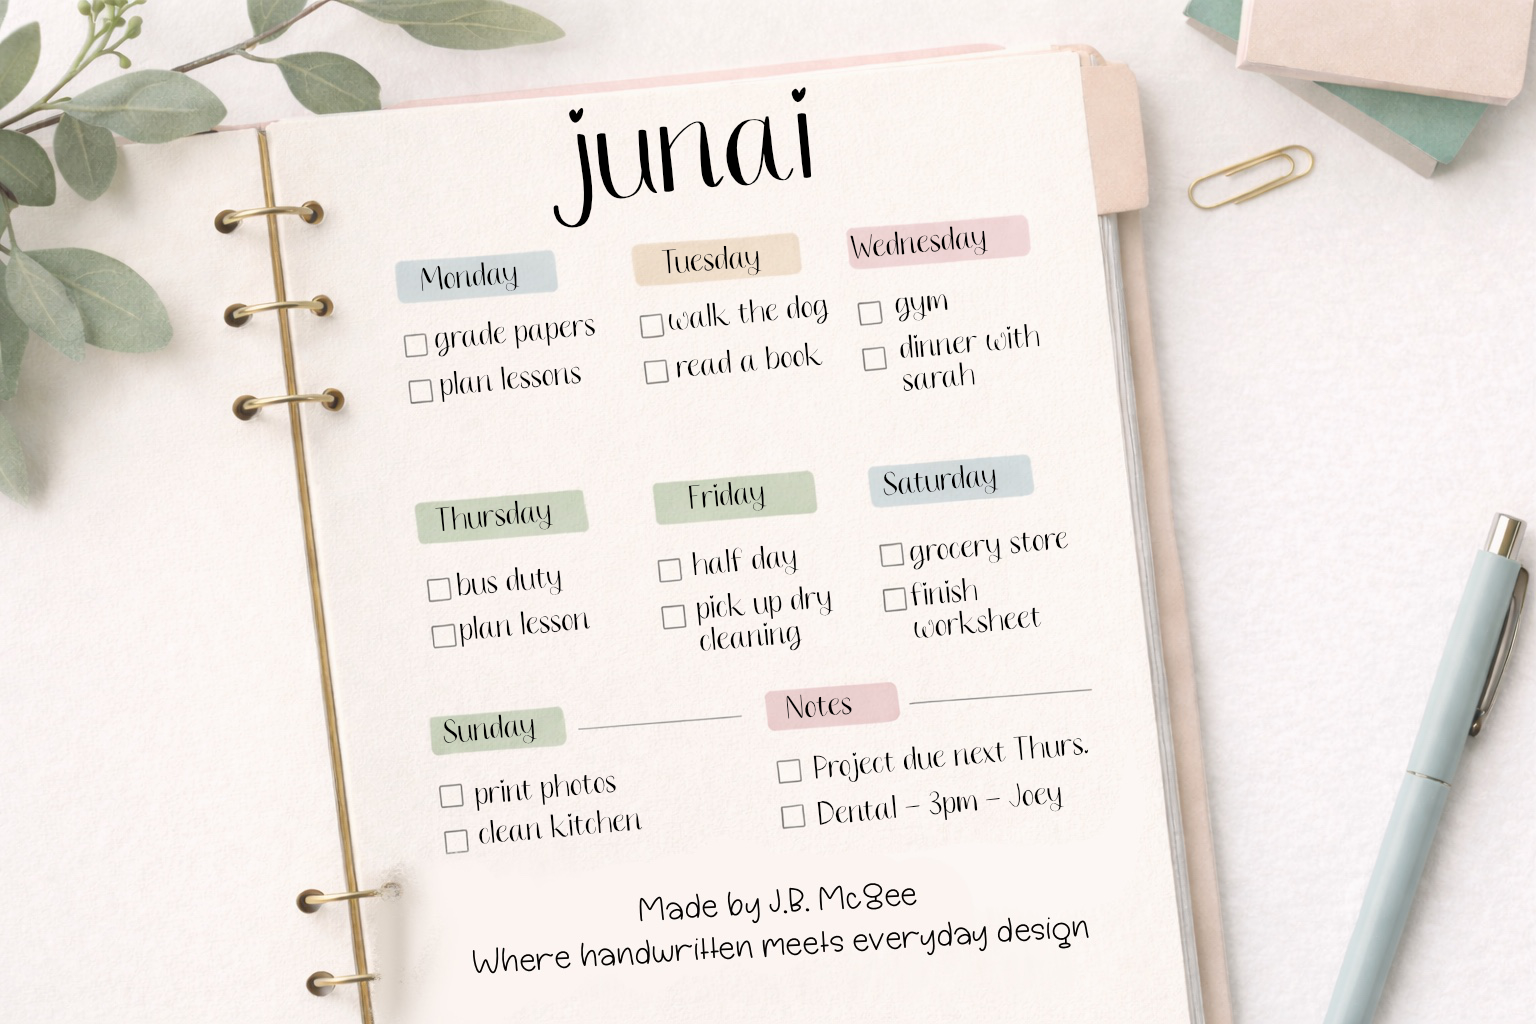 junai
Monday
Tuesday
Wednesday
grade papers
plan lessons
walk the dog
read a book
gym
dinner with
sarah
Thursday
Friday
Saturday
bus duty
plan lesson
half day
pick up dry
cleaning
grocery store
finish
worksheet
Sunday
print photos
clean kitchen
Notes
Project due next Thurs.
Dental - 3pm - Joey
Made by J.B. McGee
Where handwritten meets everyday design